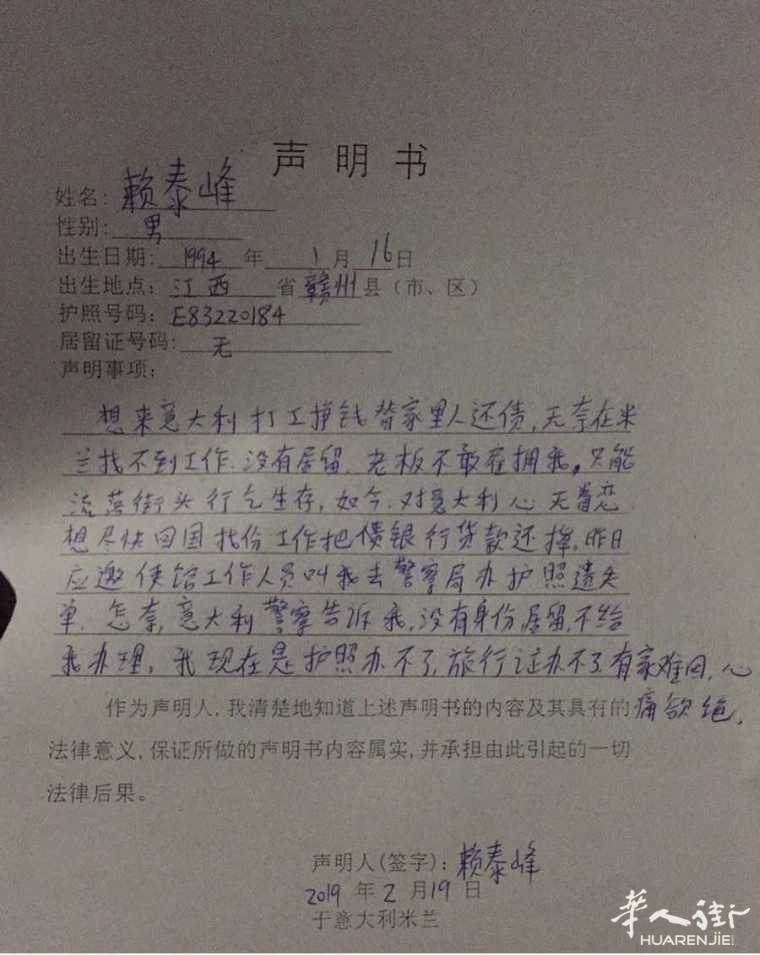 声明书
姓名：赖泰峰
性别：男
出生日期：1994年1月16日
出生地点：江西省赣州县（市、区）
护照号码：E83220184
居留证号码:无
声明事项：
想来意大利打工挣钱替家里人还债，无奈在米
兰找不到工作.没有居留，老板不敢雇拥我。只能
流落街头行乞生存，如今.对意大利心无眷恋.
想尽快回国找份工作把债银行贷款还掉.昨日
应邀使馆工作人员叫我去警察局办护照遗失
单.怎奈，意大利警察告诉我，没有身份居留，不给
我办理，我现在是护照办不了，旅行证办不了有家难回，心
痛欲绝，
作为声明人，我清楚地知道上述声明书的内容及其具有的
法律意义，保证所做的声明书内容属实，并承担由此引起的一切
法律后果。
声明人(签字)：赖泰峰
2019年2月19日
于意大利米兰
华人街
HUARENJIE